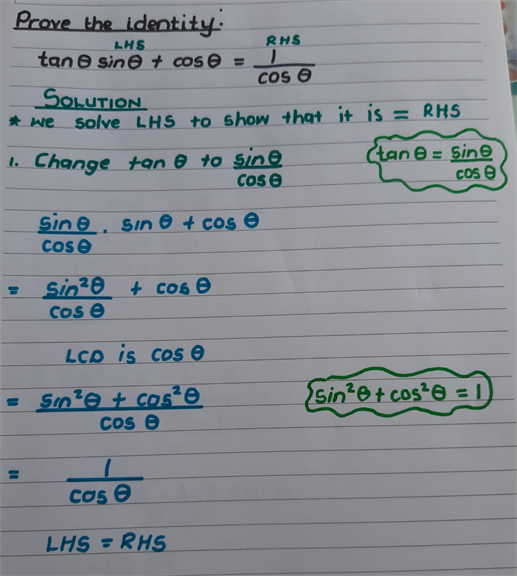 Prove the identity:
LHS RHS
tan θ sin θ + cos θ = 1/cos θ
SOLUTION
* we solve LHS to show that it is = RHS
1. Change tan θ to sin θ/cos θ
tan θ = sin θ/cos θ
sin θ/cos θ . sin θ + cos θ
= sin²θ/cos θ + cos θ
LCD is cos θ
= sin²θ + cos²θ/cos θ
sin²θ + cos²θ = 1
= 1/cos θ
LHS = RHS